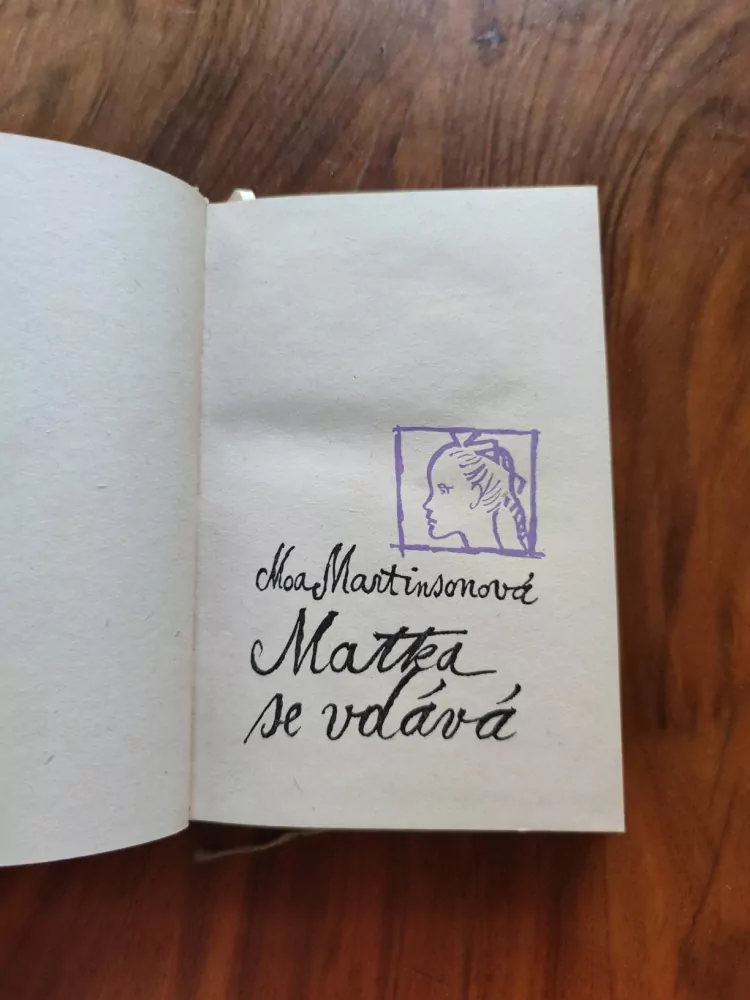 Moa Martinsonová
Matka
se vdává